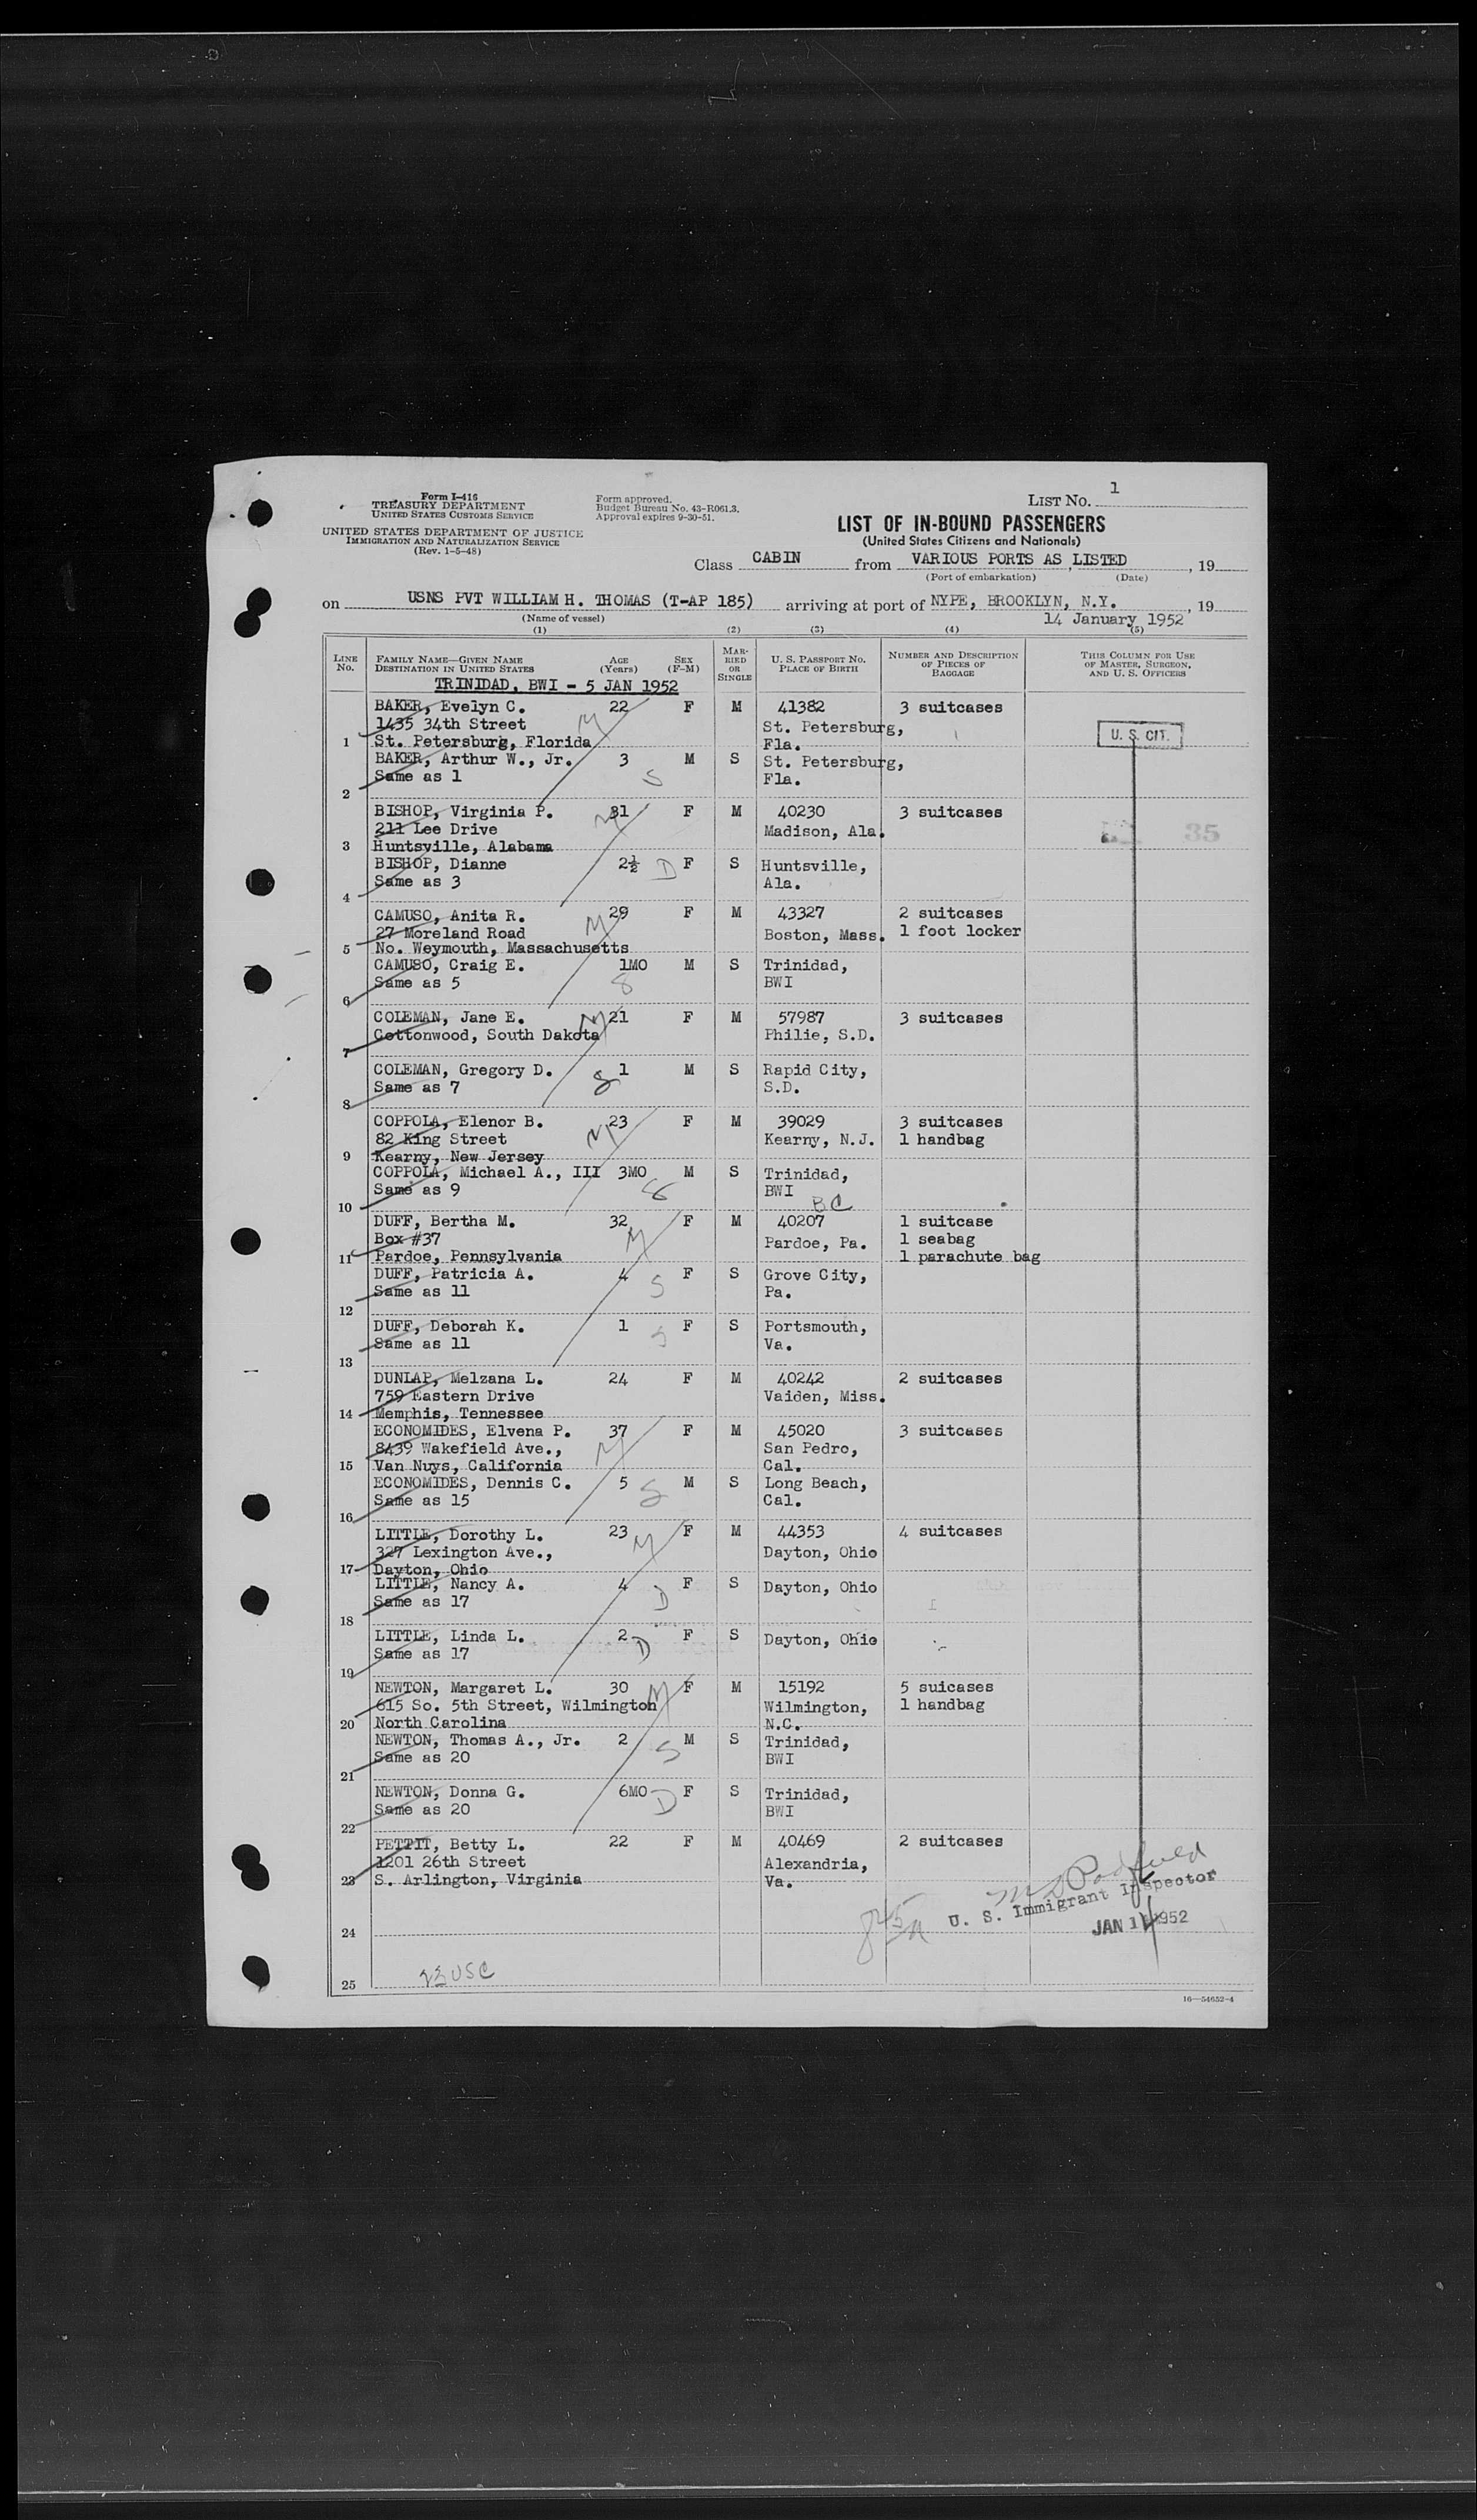 Form I-416
TREASURY DEPARTMENT
UNITED STATES CUSTOMS SERVICE
UNITED STATES DEPARTMENT OF JUSTICE
IMMIGRATION AND NATURALIZATION SERVICE
(Rev. 1-5-48)
Form approved.
Budget Bureau No. 43-R061.3.
Approval expires 9-30-51.
LIST NO. 1
LIST OF IN-BOUND PASSENGERS
(United States Citizens and Nationals)
Class CABIN from VARIOUS PORTS AS LISTED, 19
(Port of embarkation) (Date)
on USNS PVT WILLIAM H. THOMAS (T-AP 185) arriving at port of NYPE, BROOKLYN, N.Y., 19
(Name of vessel) 14 January 1952
(1) (2) (3) (4) (5)
LINE NO. FAMILY NAME—GIVEN NAME DESTINATION IN UNITED STATES AGE (Years) SEX (F-M) MARRIED OR SINGLE U. S. PASSPORT NO. PLACE OF BIRTH NUMBER AND DESCRIPTION OF PIECES OF BAGGAGE THIS COLUMN FOR USE OF MASTER, SURGEON, AND U. S. OFFICERS
TRINIDAD, BWI - 5 JAN 1952
BAKER, Evelyn C. 22 M F M 41382 3 suitcases
1435 34th Street St. Petersburg,
1 St. Petersburg, Florida Fla. U. S. CIT.
BAKER, Arthur W., Jr. 3 M S St. Petersburg,
Same as 1 S Fla.
2
BISHOP, Virginia P. 31 M F M 40230 3 suitcases
211 Lee Drive Madison, Ala. 35
3 Huntsville, Alabama
BISHOP, Dianne 2½ D F S Huntsville,
Same as 3 Ala.
4
CAMUSO, Anita R. 29 M F M 43327 2 suitcases
27 Moreland Road Boston, Mass. 1 foot locker
5 No. Weymouth, Massachusetts
CAMUSO, Craig E. 1MO M S Trinidad,
Same as 5 S BWI
6
COLEMAN, Jane E. M 21 F M 57987 3 suitcases
Cottonwood, South Dakota Philie, S.D.
7
COLEMAN, Gregory D. S 1 M S Rapid City,
Same as 7 S.D.
8
COPPOLA, Elenor B. 23 F M 39029 3 suitcases
82 King Street M Kearny, N.J. 1 handbag
9 Kearny, New Jersey
COPPOLA, Michael A., III 3MO M S Trinidad,
Same as 9 S BWI
10 BC
DUFF, Bertha M. 32 F M 40207 1 suitcase
Box #37 M Pardoe, Pa. 1 seabag
11 Pardoe, Pennsylvania 1 parachute bag
DUFF, Patricia A. 4 F S Grove City,
Same as 11 S Pa.
12
DUFF, Deborah K. 1 S F S Portsmouth,
Same as 11 Va.
13
DUNLAP, Melzana L. 24 F M 40242 2 suitcases
759 Eastern Drive Vaiden, Miss.
14 Memphis, Tennessee
ECONOMIDES, Elvena P. 37 F M 45020 3 suitcases
8439 Wakefield Ave., M San Pedro,
15 Van Nuys, California Cal.
ECONOMIDES, Dennis C. 5 S M S Long Beach,
Same as 15 Cal.
16
LITTLE, Dorothy L. 23 M F M 44353 4 suitcases
327 Lexington Ave., Dayton, Ohio
17 Dayton, Ohio
LITTLE, Nancy A. 4 F S Dayton, Ohio
Same as 17 D
18
LITTLE, Linda L. 2 D F S Dayton, Ohio
Same as 17
19
NEWTON, Margaret L. 30 M F M 15192 5 suicases
615 So. 5th Street, Wilmington Wilmington, 1 handbag
20 North Carolina N.C.
NEWTON, Thomas A., Jr. 2 S M S Trinidad,
Same as 20 BWI
21
NEWTON, Donna G. 6MO D F S Trinidad,
Same as 20 BWI
22
PETTIT, Betty L. 22 F M 40469 2 suitcases
1201 26th Street Alexandria,
23 S. Arlington, Virginia Va.
U. S. Immigrant Inspector
JAN 14 1952
24
25 23 USC
16—54652-4